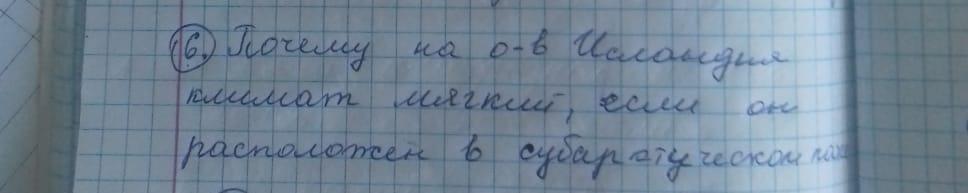 16. Почему на о-в Исландия
климат мягкий, если он
расположен в субарктическом